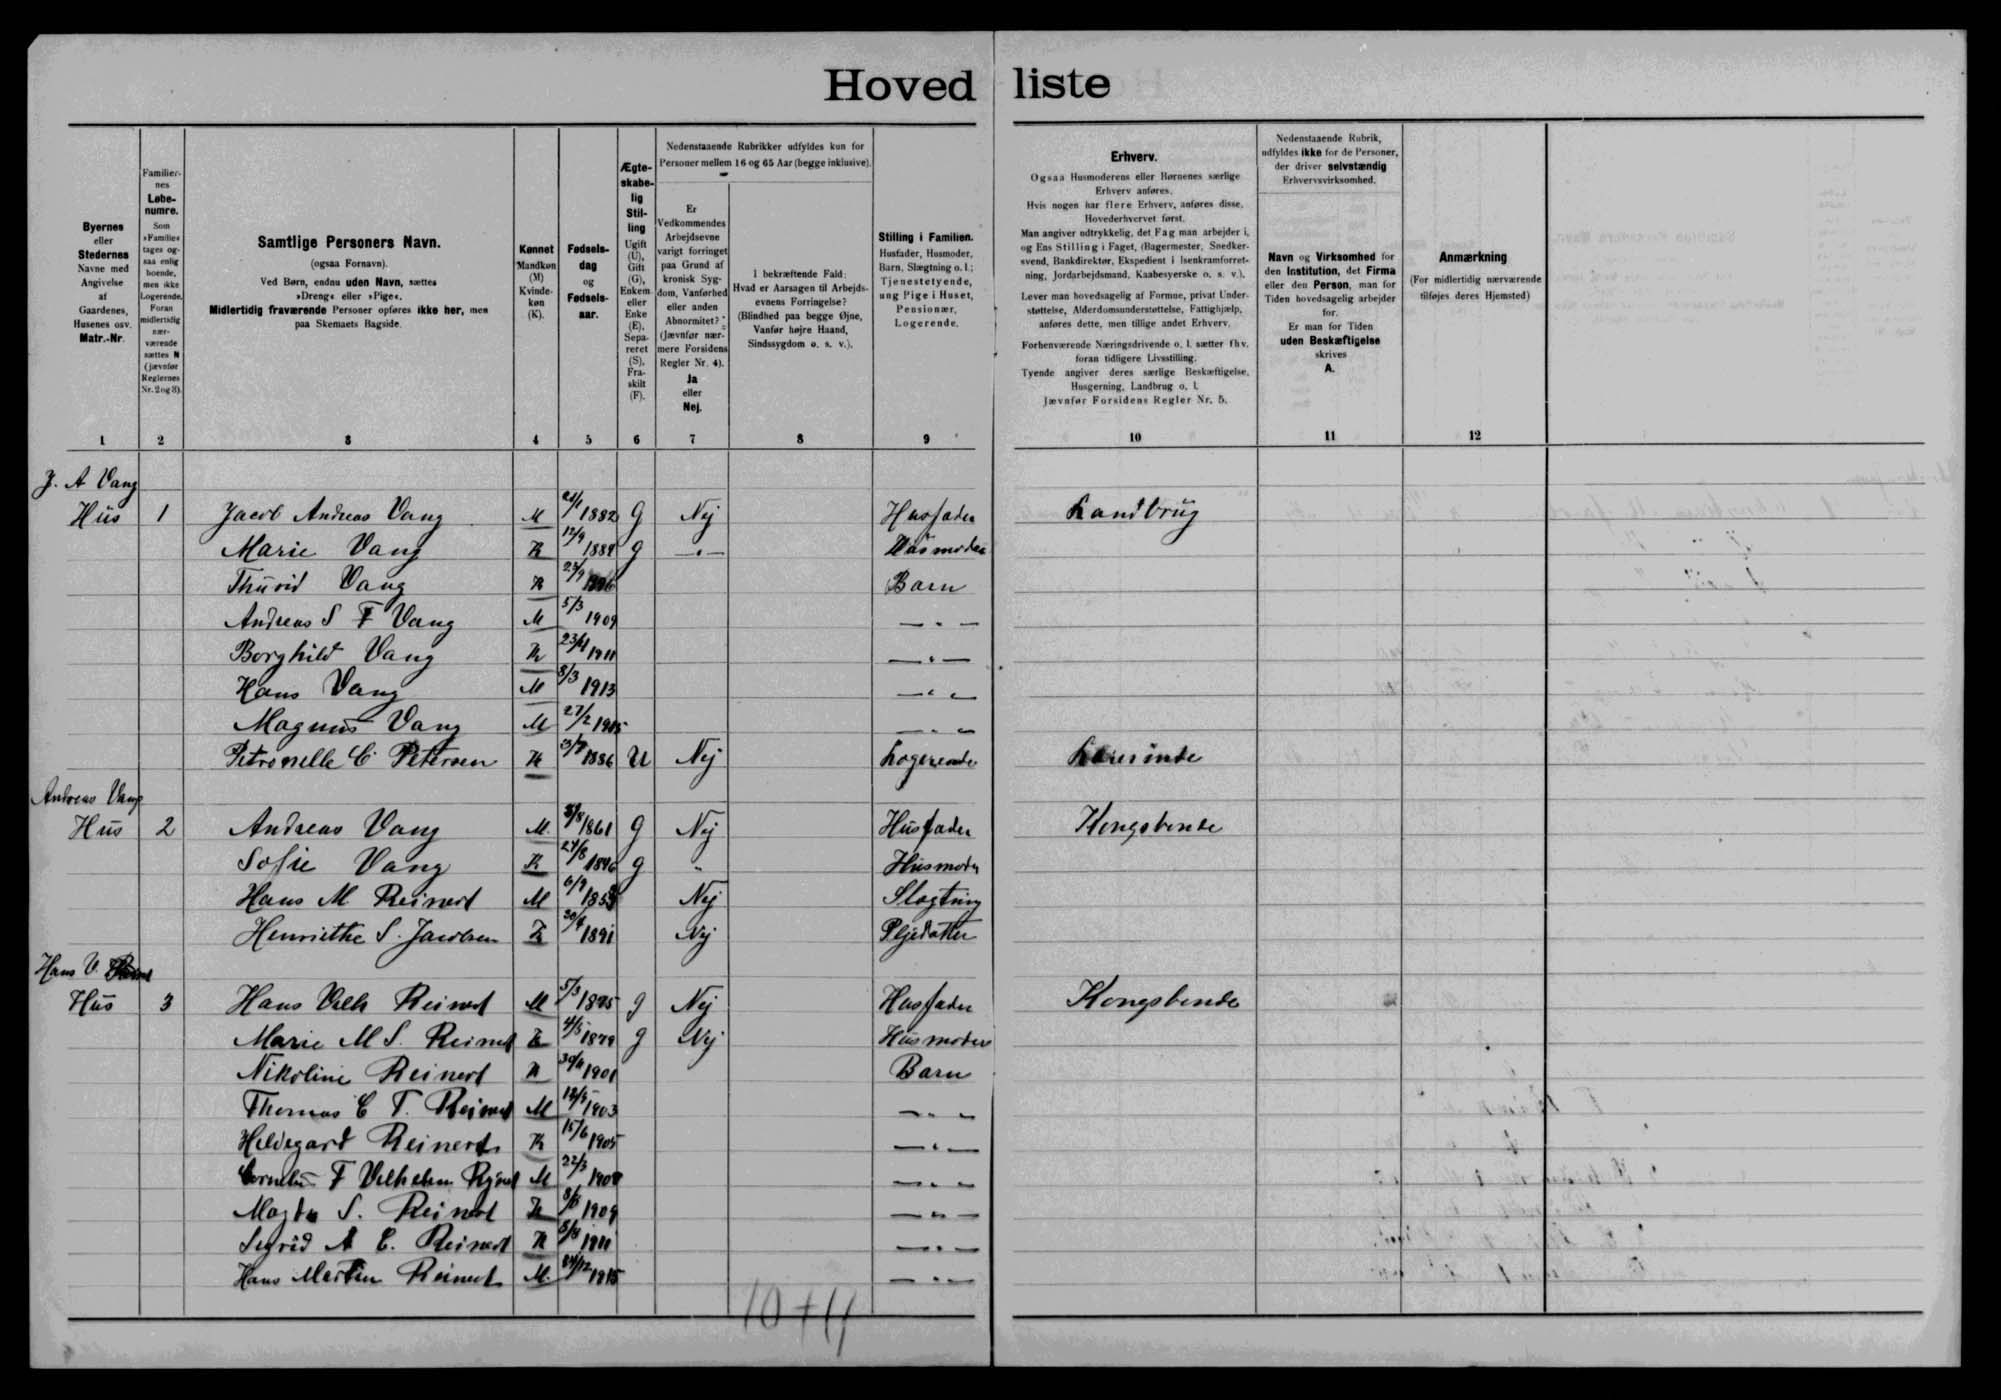 Hovedliste
Byernes eller Stedernes Navne med Angivelse af Gaardenes, Husenes osv. Matr.-Nr.
Familiernes Løbenumre. Som »Familie« tages ogsaa enlig boende, men ikke Logerende. Foran midlertidig nærværende sættes N (jævnfør Reglernes Nr. 2 og 3).
Samtlige Personers Navn. (ogsaa Fornavn). Ved Børn, endnu uden Navn, sættes »Dreng« eller »Pige«. Midlertidig fraværende Personer opføres ikke her, men paa Skemaets Bagside.
Kønnet Mandkøn (M) Kvindekøn (K).
Fødselsdag og Fødselsaar.
Ægteskabelig Stilling Ugift (U), Gift (G), Enkem. eller Enke (E), Separeret (S), Fraskilt (F).
Nedenstaaende Rubrikker udfyldes kun for Personer mellem 16 og 65 Aar (begge inklusive).
Er Vedkommendes Arbejdsevne varigt forringet paa Grund af kronisk Sygdom, Vanførhed eller anden Abnormitet? (Jævnfør nærmere Forsidens Regler Nr. 4). Ja eller Nej.
I bekræftende Fald: Hvad er Aarsagen til Arbejdsevnens Forringelse? (Blindhed paa begge Øjne, Vanfør højre Haand, Sindssygdom o. s. v.).
Stilling i Familien. Husfader, Husmoder, Barn, Slægtning o. l.; Tjenestetyende, ung Pige i Huset, Pensionær, Logerende.
Erhverv.
Ogsaa Husmoderens eller Børnenes særlige Erhverv anføres.
Hvis nogen har flere Erhverv, anføres disse, Hovederhvervet først.
Man angiver udtrykkelig, det Fag man arbejder i, og Ens Stilling i Faget, (Bagermester, Snedkersvend, Bankdirektør, Ekspedient i Isenkramforretning, Jordarbejdsmand, Kaabesyerske o. s. v.).
Lever man hovedsagelig af Formue, privat Understøttelse, Alderdomsunderstøttelse, Fattighjælp, anføres dette, men tillige andet Erhverv.
Forhenværende Næringsdrivende o. l. sætter fhv. foran tidligere Livsstilling.
Tyende angiver deres særlige Beskæftigelse, Husgerning, Landbrug o. l.
Jævnfør Forsidens Regler Nr. 5.
Nedenstaaende Rubrik, udfyldes ikke for de Personer, der driver selvstændig Erhvervsvirksomhed.
Navn og Virksomhed for den Institution, det Firma eller den Person, man for Tiden hovedsagelig arbejder for.
Er man for Tiden uden Beskæftigelse skrives A.
Anmærkning (For midlertidig nærværende tilføjes deres Hjemsted)
1 2 3 4 5 6 7 8 9 10 11 12
J. A Vang
Hus 1 Jacob Andreas Vang M 1882 G Nej Husfader Landbrug
Marie Vang K 12/9 G Husmoder
Thurid Vang K Barn
Andreas S F Vang M 5/3 1909
Borghild Vang K 1911
Hans Vang M 8/3 1913
Magnus Vang M 27/2 1915
Petronella C Petersen K 1886 U Nej Logerende Lærerinde
Andreas Vang
Hus 2 Andreas Vang M. 1861 G Nej Husfader Kongsbonde
Sofie Vang K 24/8 G " Husmoder
Hans M Reinert M 6/9 Nej Slægtning
Henriette S. Jacobsen K 1891 Nej Plejedatter
Hans V.
Hus 3 Hans Vilh Reinert M 5/3 1875 G Nej Husfader Kongsbonde
Marie M S. Reinert K 4/5 1879 G Nej Husmoder
Nikoline Reinert K 1901 Barn
Thomas C T. Reinert M 1903
Hildegard Reinert K 15/6 1905
F Vilhelm M 22/3
Magda S. Reinert K 1909
Sigrid A C. Reinert K 1911
Hans Martin Reinert M. 24/12 1915
10+11